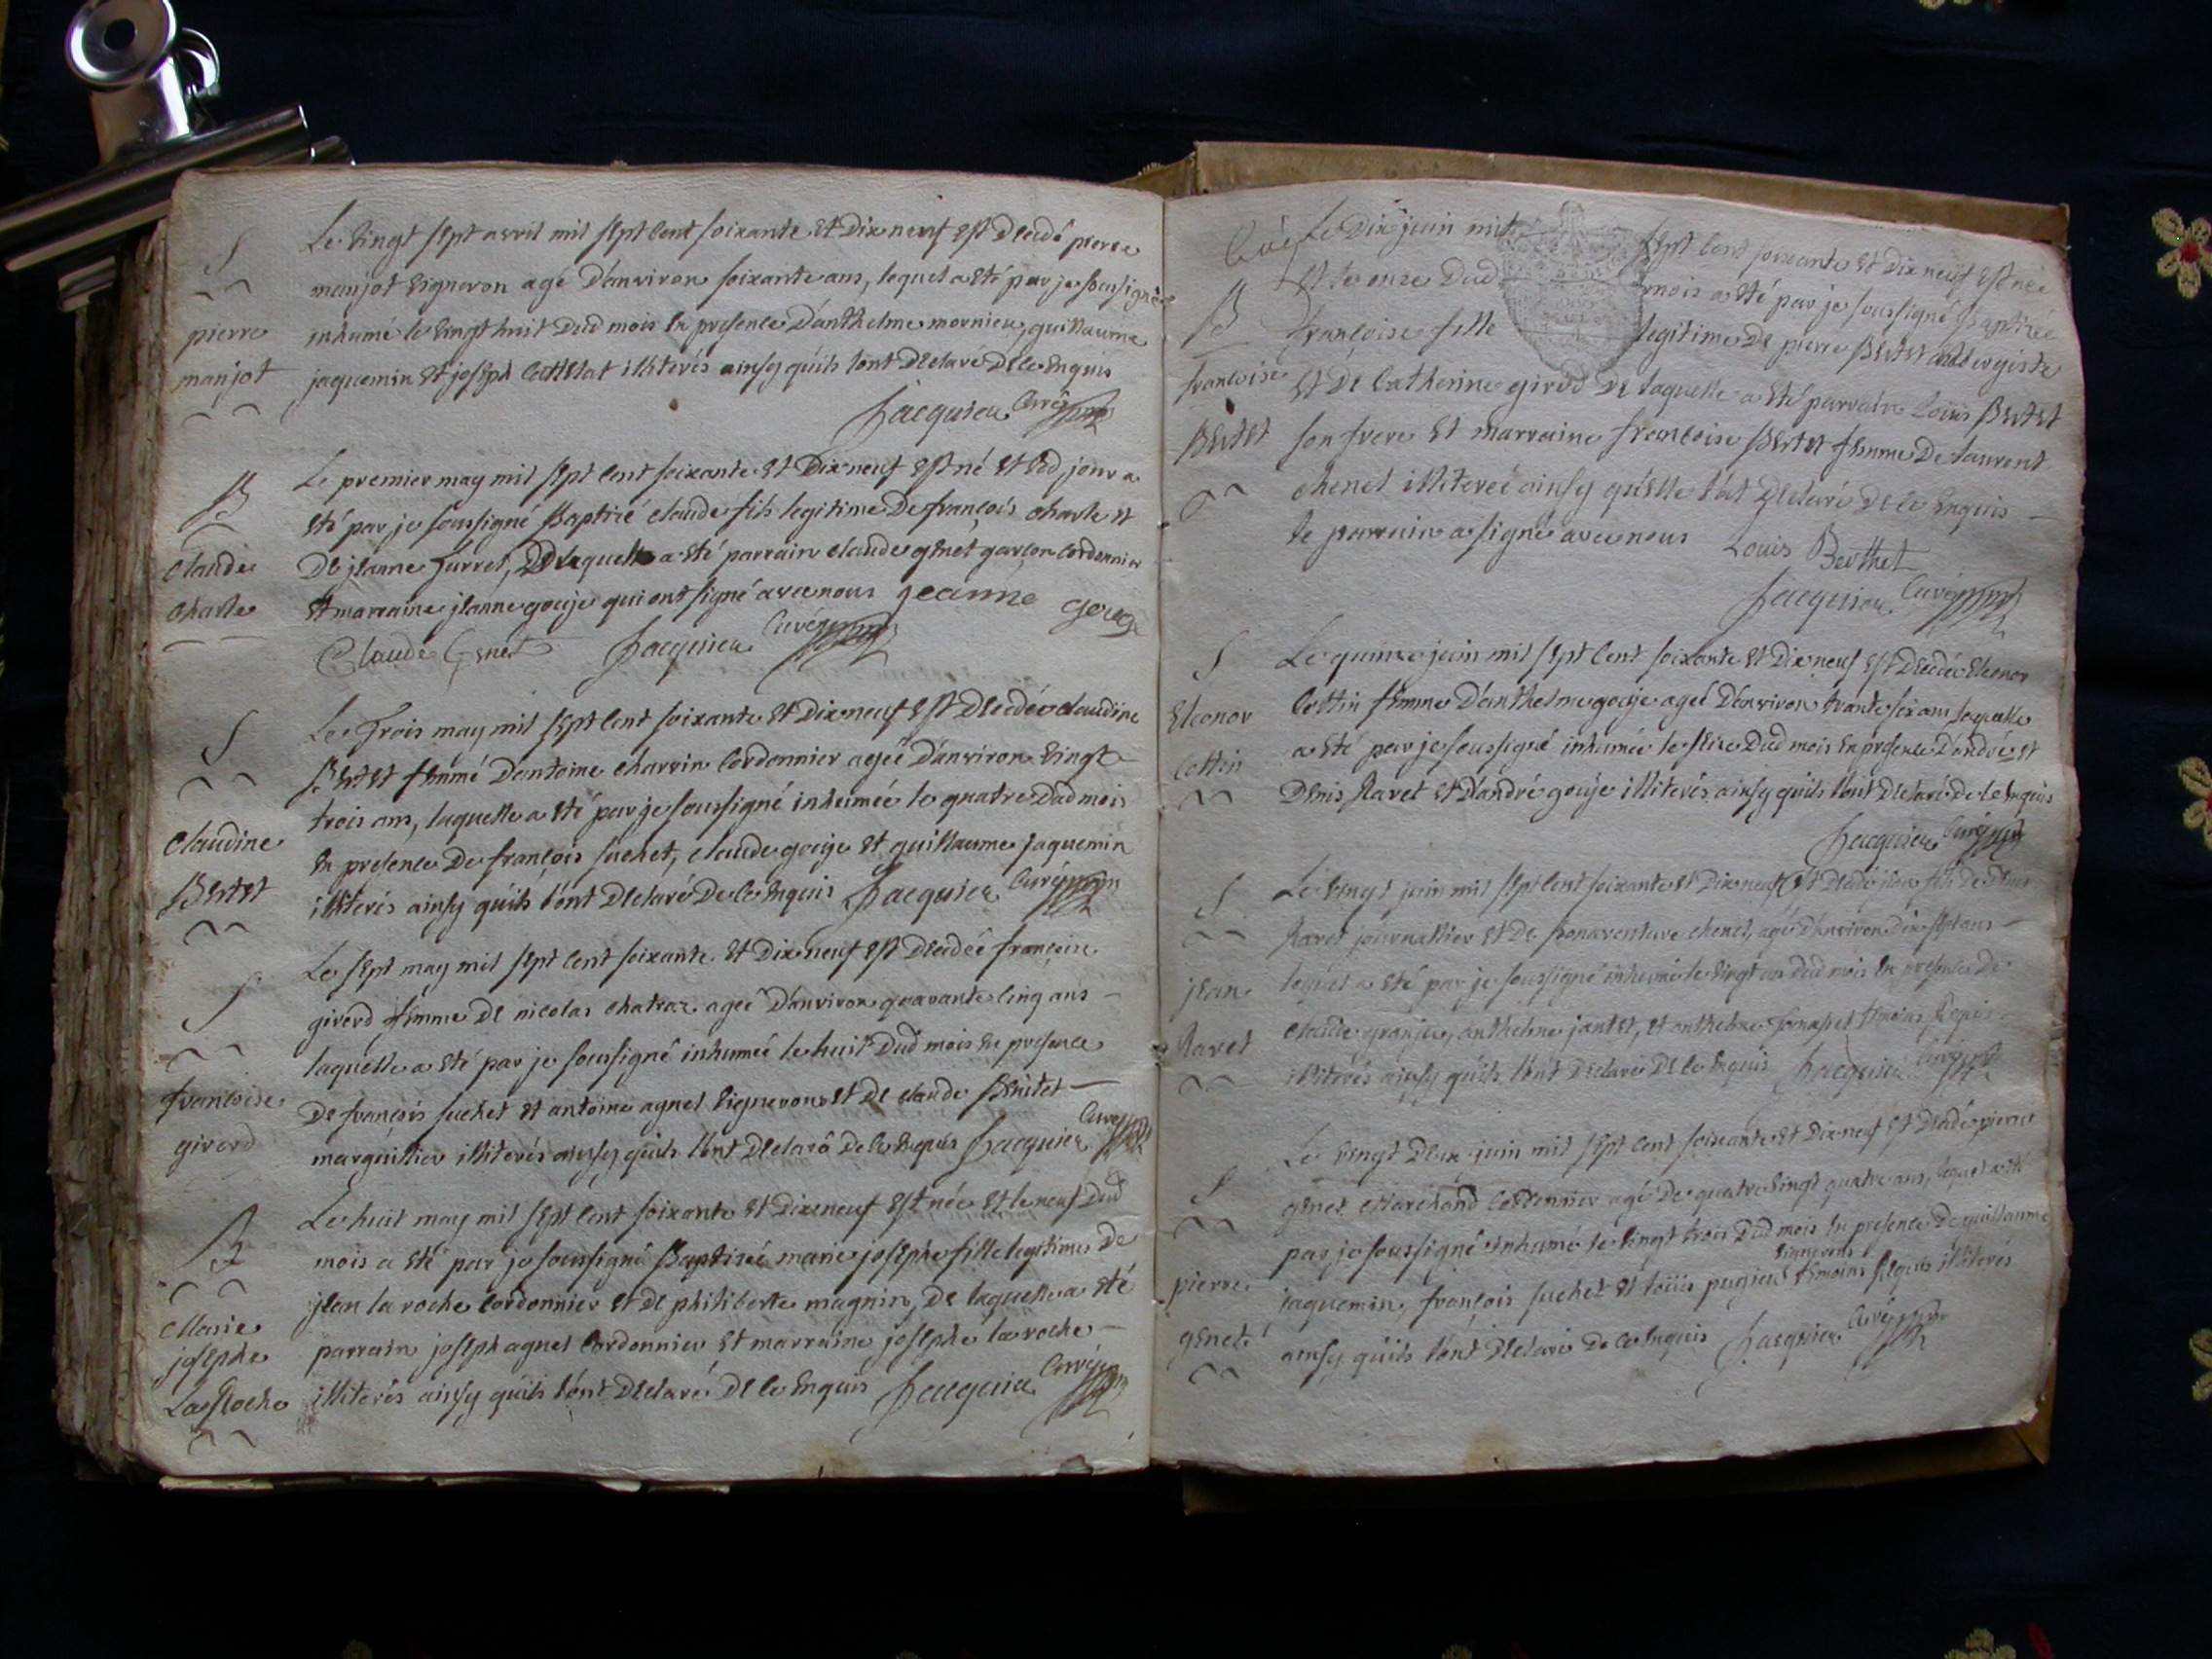 S
pierre
manjot
Le vingt sept avril mil sept cent soixante et dix neuf est decedé pierre
manjot vigneron agé d'anviron soixante ans, lequel a eté par je soussigné
inhumé le vingt huit dud mois en presence d'anthelme mornieu, guillaume
jaquemin et joseph illiterés ainsy quils l'ont declaré de ce enquis
Jacquieu Curé
B
claude
charle
Le premier may mil sept cent soixante et dix neuf est né et led jour a
eté par je soussigné Baptizé claude fils legitime de françois charle et
de jeanne furret, de laquelle a eté parrain claude genet garçon cordonnier
et marraine jeanne gouje qui ont signé avec nous jeanne gouge
Claude Genet Jacquieu Curé
S
claudine
Bertet
Le trois may mil sept cent soixante et dix neuf est decedée claudine
Bertet femme d'antoine charvin cordonnier ageé d'anviron vingt
trois ans, laquelle a eté par je soussigné inhumée le quatre dud mois
en presence de françois suchet, claude gouje et guillaume jaquemin
illiterés ainsy quils l'ont declaré de ce enquis Jacquieu Curé
S
françoise
girerd
Le sept may mil sept cent soixante et dix neuf est decedeé françoise
girerd femme de nicolas chatraz ageé d'anviron quarante cinq ans
laquelle a eté par je soussigné inhumeé le huit dud mois en presence
de françois suchet et antoine agnel vignerons et de claude Benitet
marguillier illiterés ainsy quils l'ont declaré de ce enquis Jacquieu Curé
B
Marie
josephe
La Roche
Le huit may mil sept cent soixante et dix neuf est née et le neuf dud
mois a eté par je soussigné Baptizeé marie josephe fille legitime de
jean la roche cordonnier et de philiberte magnin, de laquelle a eté
parrain joseph agnel cordonnier et marraine josephe la roche
illiterés ainsy quils l'ont declaré de ce enquis Jacquieu Curé
B
françoise
Bertet
Le dix juin mil sept cent soixante et dix neuf est neé
et le onze dud mois a eté par je soussigné Baptizée
françoise fille legitime de pierre Bertet aubergiste
et de catherine girod de laquelle a eté parrain Loüis Bertet
son frere et marraine françoise Bertet femme de laurent
chenel illitereé ainsy qu'elle l'at declaré de ce enquis
le parrain a signé avec nous Louis Berthet
Jacquieu Curé
S
Eleonor
Cottin
Le quinze juin mil sept cent soixante et dix neuf est decedée Eleonor
Cottin femme d'anthelme gouje ageé d'anviron trante six ans laquelle
a eté par je soussigné inhumée le seize dud mois en presence d'andré et
denis Ravet et d'andré gouje illiterés ainsy quils l'ont declaré de ce enquis
Jacquieu Curé
S
jean
Ravet
Le vingt juin mil sept cent soixante et dix neuf est decedé jean fils de denis
Ravet journallier et de bonaventure chenel, agé d'anviron dix sept ans
lequel a eté par je soussigné inhumé le vingt un dud mois en presence de
claude granje, anthelme jantet, et anthelme temoins requis
illiterés ainsy quils l'ont declaré de ce enquis Jacquieu Curé
S
pierre
genet
Le vingt deux juin mil sept cent soixante et dix neuf est decedé pierre
genet Marchand cordonnier agé de quatre vingt quatre ans, lequel a eté
par je soussigné inhumé le vingt trois dud mois en presence de guillaume
vignerons
jaquemin, françois suchet et loüis pugieu temoins requis illiterés
ainsy quils l'ont declaré de ce enquis Jacquieu Curé